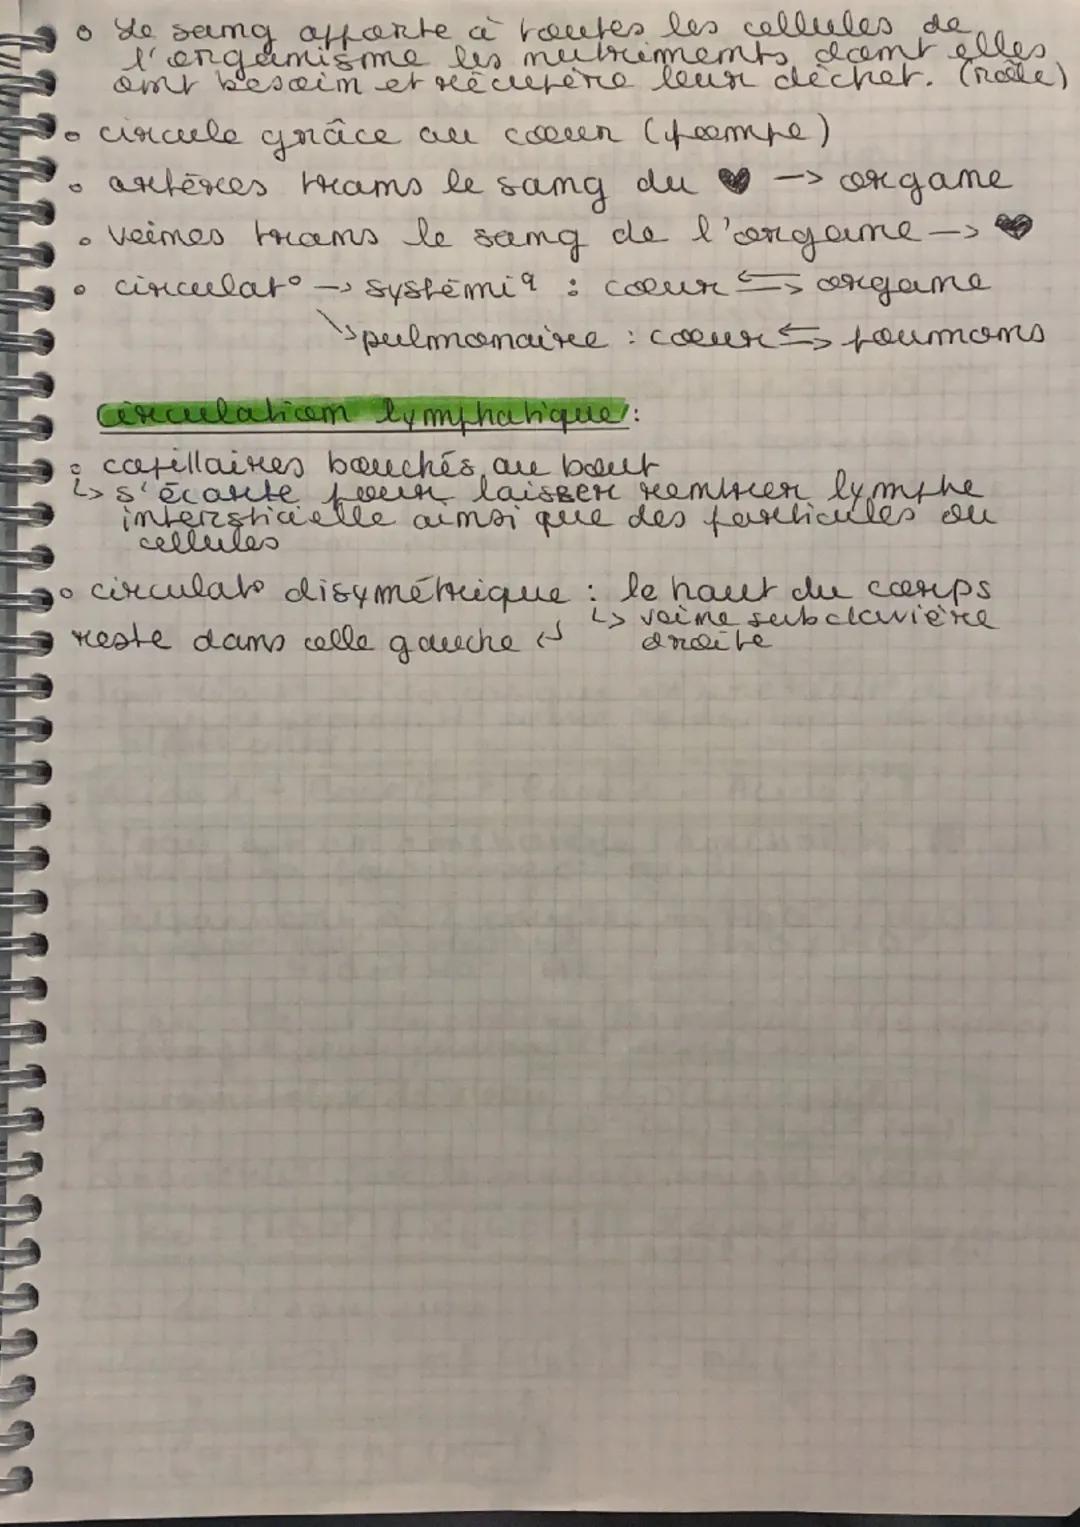 ° Le sang apporte à toutes les cellules de
l'organisme les nutriments dont elles
ont besoin et récupère leur déchet. (rôle)
° circule grâce au coeur (pompe)
° artères trans le sang du ♥ -> organe
° veines trans le sang de l'organe -> ♥
° circulat° -> systémiq : coeur ⇆ organe
↘ pulmonaire : coeur ⇆ poumons
Circulation lymphatique :
° capillaires bouchés au bout
↳ s'écarte pour laisser rentrer lymphe
intersticielle ainsi que des particules ou
cellules
° circulat° disymétrique : le haut du corps
↳ veine subclavière
droite
reste dans celle gauche ↵